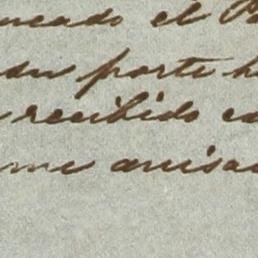 neado el
su parte
recibido
me avisa